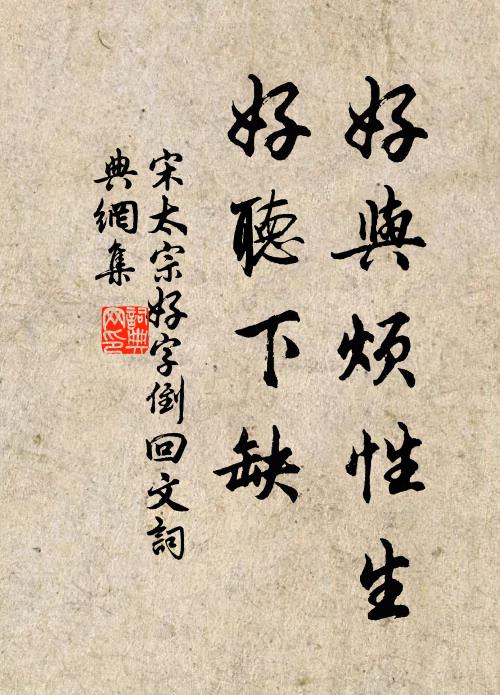 好與煩性生
好聽下缺
宋太宗好字倒回文詞
典網集
詞典
网印